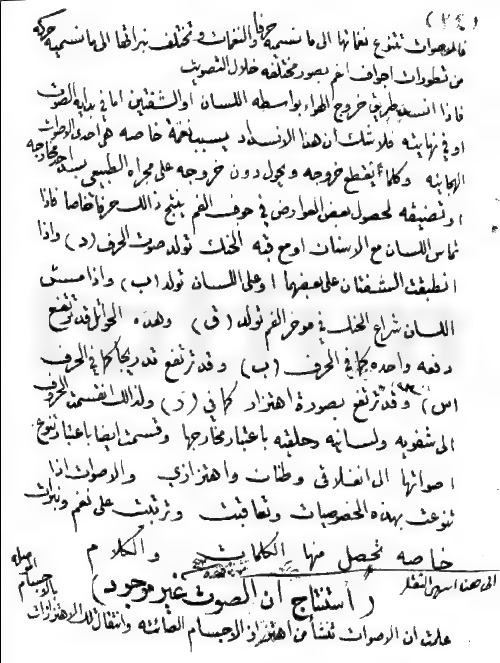 (٢٤)
فالموجات تتنوع نغماتها الى ما نسميه حرفا والنغمات وتختلف نبراتها الى ما نسميه حركه
من تطورات اجواف الفم بصور مختلفه خلال التصويت
فاذا انسد طريق خروج الهواء بواسطه اللسان او الشفتين اما في بدايه الصوت
او في نهايته فلا شك ان هذا الانسداد يسبب نغمة خاصه هي احدى الاصوات
الهجائيه وكلما ينقطع خروجه ويحول دون خروجه على مجراه الطبيعي بسد احد مخارجه
او تضييقه لحصول بعض العوارض في جوف الفم ينتج ذالك حرفا خاصا فاذا
تماس اللسان مع الاسنان او مع قبه الحنك تولد صوت الحرف (د) واذا
انطبقت الشفتان على بعضهما او على اللسان تولد (ب) واذا مس
اللسان شراع الحنك في موخر الفم تولد (ق) وهذه الحوائل قد ترتفع
دفعه واحده كما في الحرف (ب) وقد ترتفع تدريجا كما في الحرف
(س) وقد ترتفع بصورة اهتزاز كما في (ر) ولذالك انقسمت الحروف
الى شفويه ولسانيه وحلقيه باعتبار مخارجها وقسمت ايضا باعتبار تنوع
اصواتها الى انغلاقى وطنان واهتزازي والاصوات اذا
تنوعت بهذه الخصوصيات وتعاقبت وترتبت على نغم ونبرات
خاصه تحصل منها الكلمات والكلام
الى هنا
(استنتاج ان الصوت غير موجود)
علمت ان الاصوات تنشأ من اهتزاز الاجسام الصائته وانتقال تلك الاهتزازات
بالاجسام